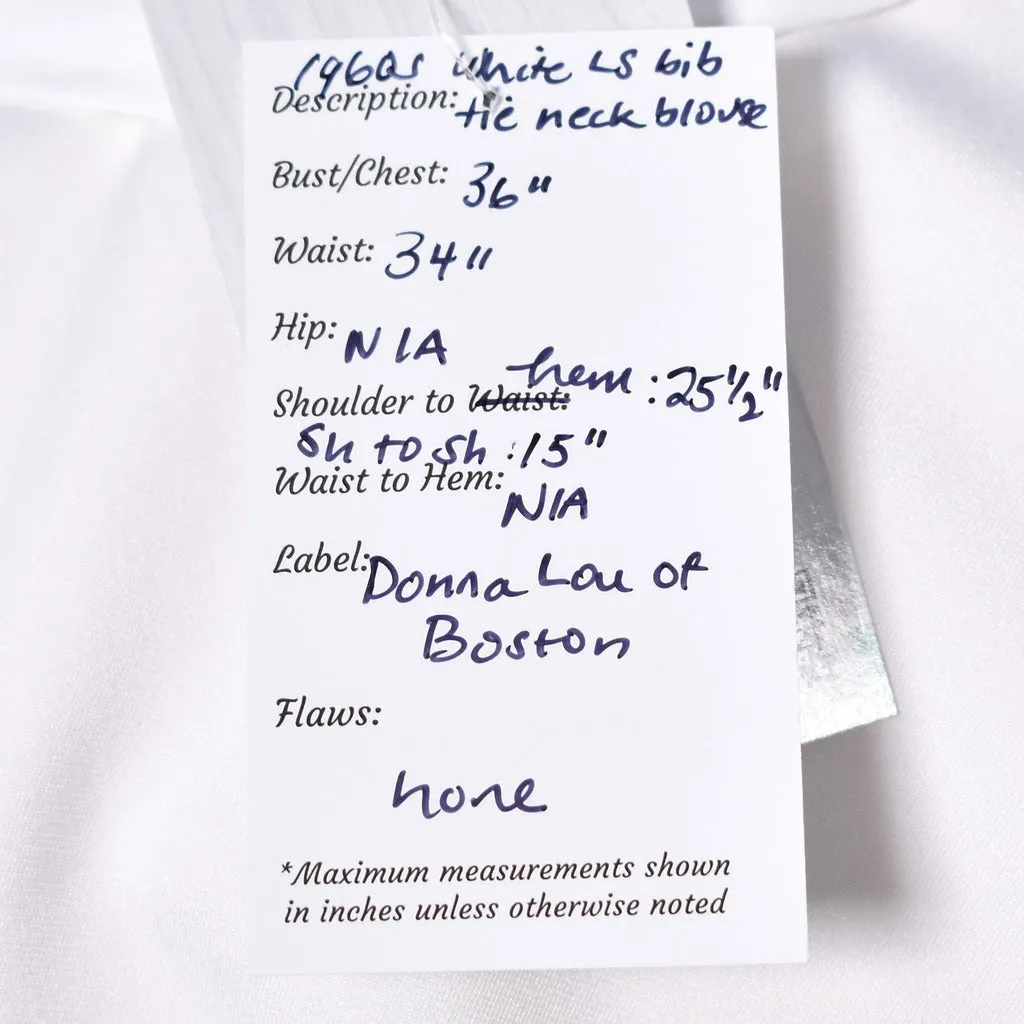 1960s white LS bib
Description: tie neck blouse
Bust/Chest: 36"
Waist: 34"
Hip: N/A
hem: 25 1/2"
Shoulder to Waist:
Sh to sh: 15"
Waist to Hem: N/A
Label: Donna Lou of
Boston
Flaws:
none
*Maximum measurements shown
in inches unless otherwise noted